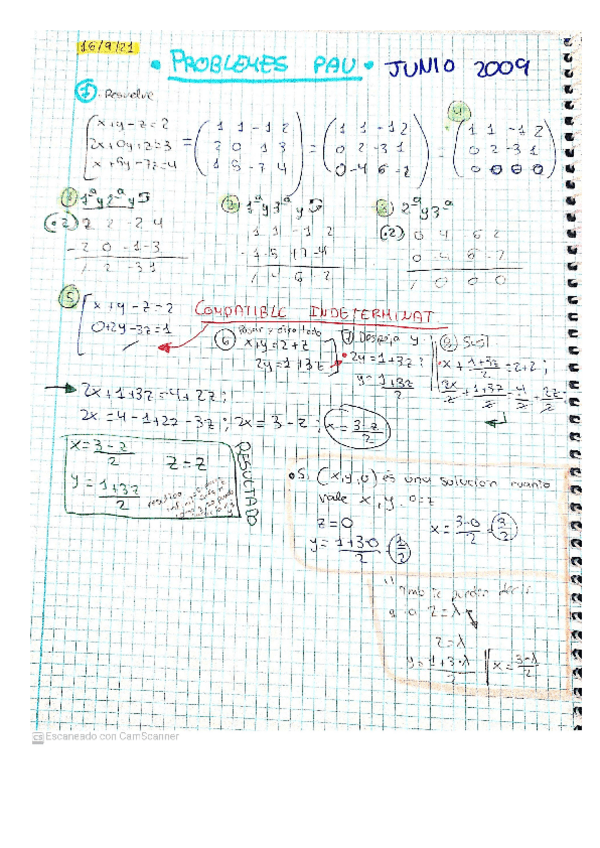 16/9/21
• PROBLEMES PAU • JUNIO 2009
1. Resuelve
x+y-z=2
2x+0y+z=3
x+5y-7z=4
= ( 1 1 -1 2
2 0 1 3
1 5 -7 4 )
= ( 1 1 -1 2
0 2 -3 1
0 -4 6 -2 )
= ( 1 1 -1 2
0 2 -3 1
0 0 0 0 )
4
1 1ª y 2ª y
(·2) 2 2 -2 4
- 2 0 -1 -3
/ 2 -3 1
2 1ª y 3ª y
1 1 -1 2
-1 -5 +7 -4
/ -4 6 -2
3 2ª y 3ª
(·2) 0 4 6 2
0 -4 6 -2
/ 0 0 0
5 x+y-z=2
0+2y-3z=1
COMPATIBLE INDETERMINAT
6
x+y=2+z
2y=1+3z
7 Despeja y
2y=1+3z;
y=1+3z/2
8 Sust
x+1+3z/2=2+z;
2x/2+1+3z/2=4/2+2z/2
2x+1+3z=4+2z;
2x=4-1+2z-3z; 2x=3-z; x=3-z/2
x=3-z/2 z=z
y=1+3z/2
RESULTADO
• Si (x,y,0) és una solucion cuanto
vale x, y. 0=z
z=0
y=1+3·0/2 = 1/2
x=3-0/2 = 3/2
z=λ
z=λ
y=1+3·λ/2 x=3-λ/2
CS Escaneado con CamScanner